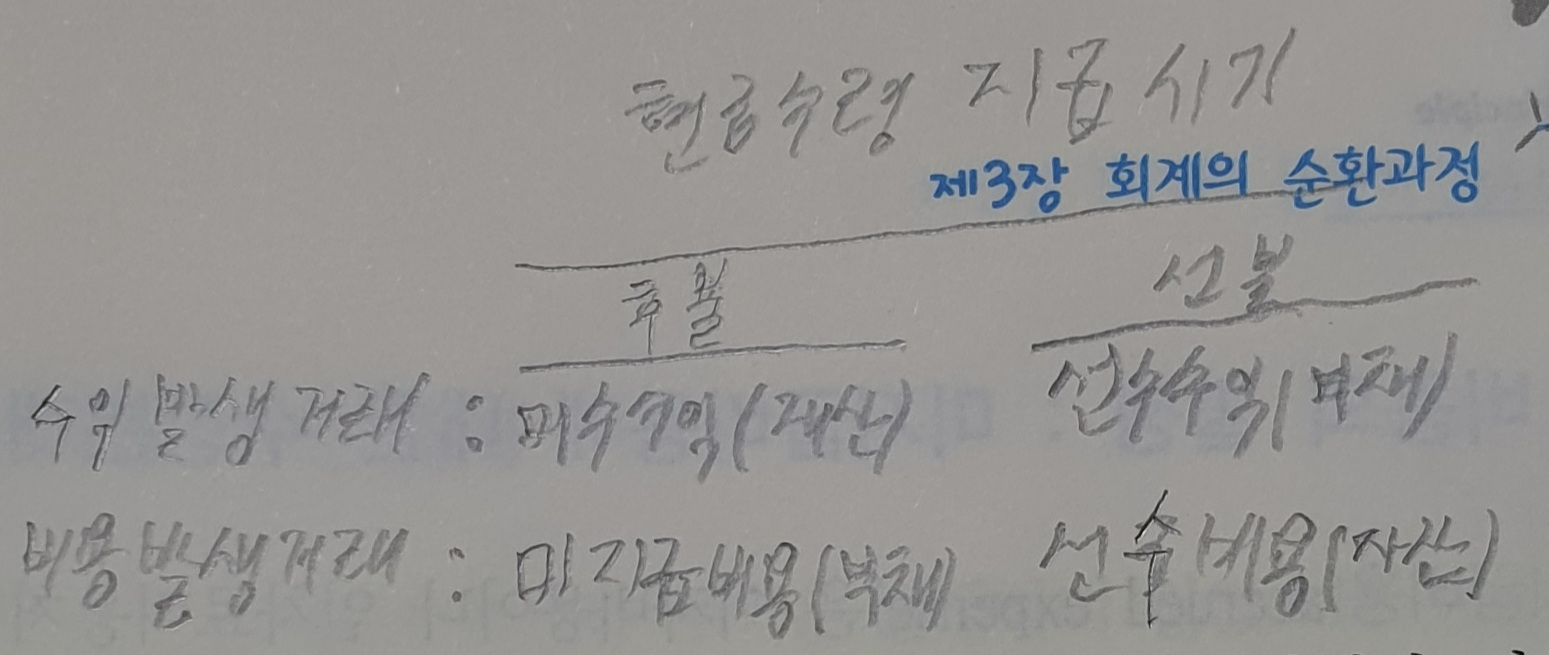 현금수령 지급시기
제3장 회계의 순환과정
후불 선불
수익발생거래 : 미수수익(자산) 선수수익(부채)
비용발생거래 : 미지급비용(부채) 선수비용(자산)